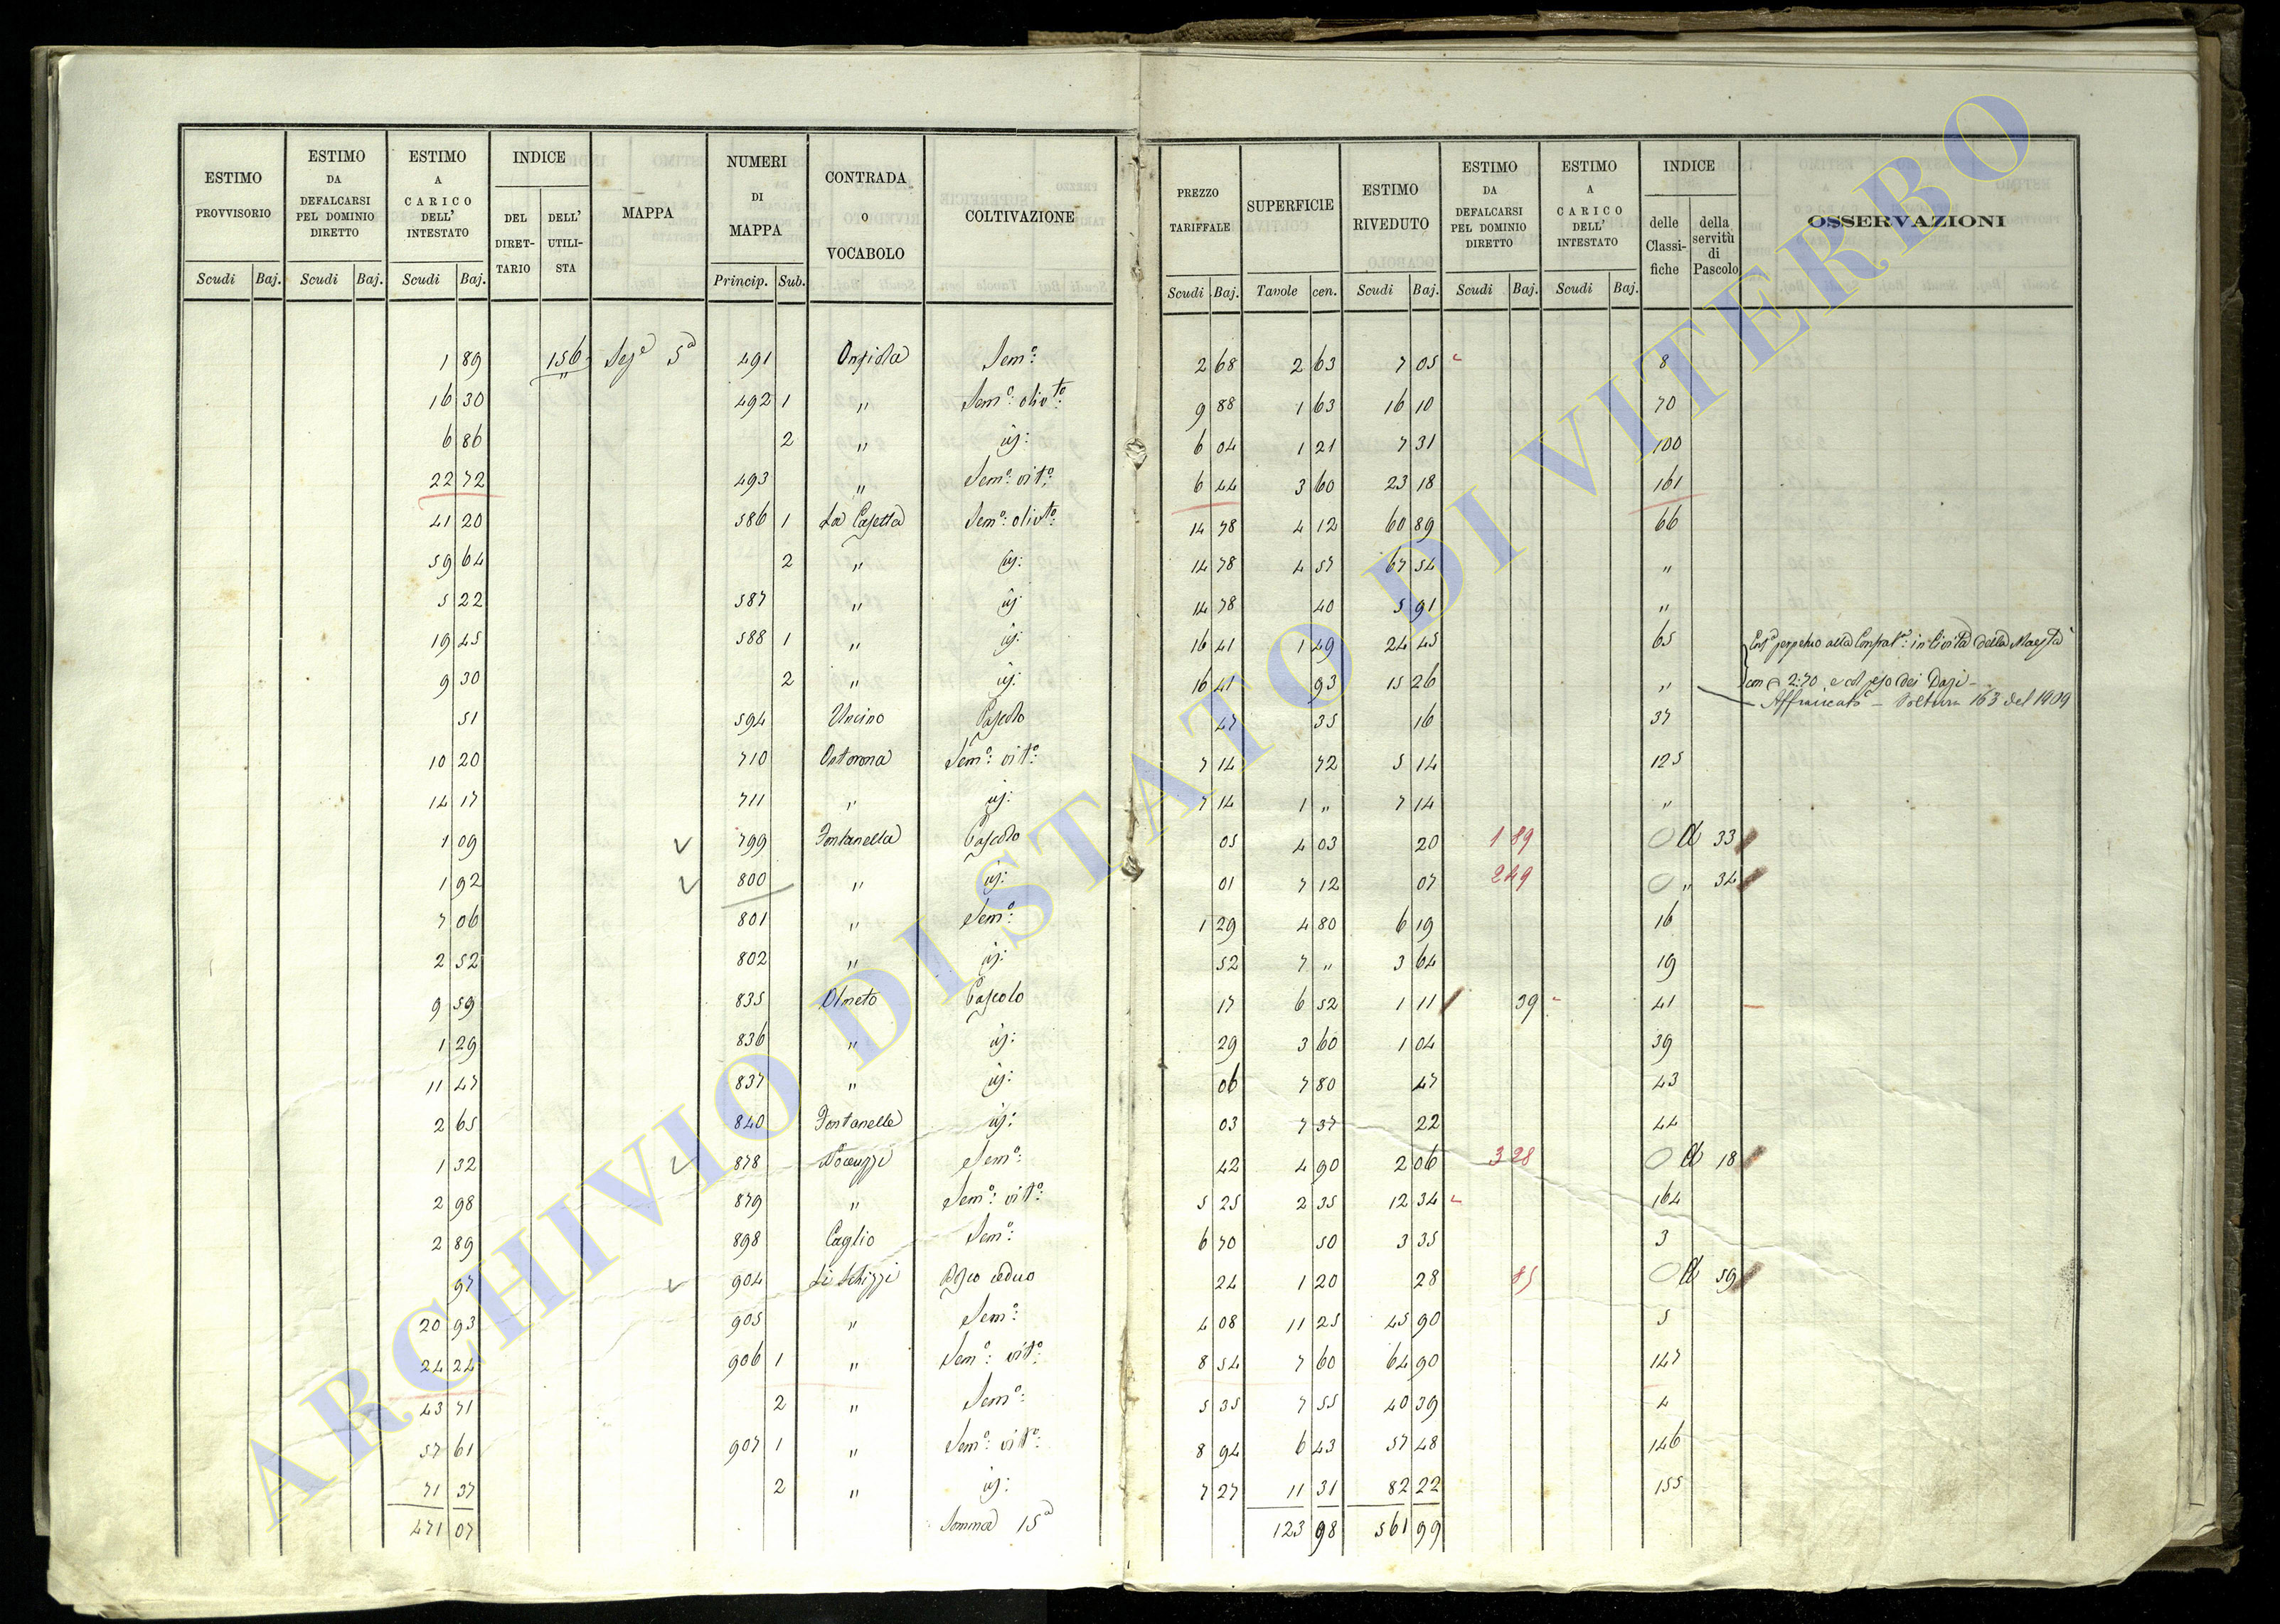 ESTIMO PROVVISORIO | ESTIMO DA DEFALCARSI PEL DOMINIO DIRETTO | ESTIMO A CARICO DELL' INTESTATO | INDICE | MAPPA | NUMERI DI MAPPA | CONTRADA O VOCABOLO | COLTIVAZIONE | PREZZO TARIFFALE | SUPERFICIE | ESTIMO RIVEDUTO | ESTIMO DA DEFALCARSI PEL DOMINIO DIRETTO | ESTIMO A CARICO DELL' INTESTATO | INDICE | OSSERVAZIONI
DEL DIRETTARIO | DELL' UTILISTA | delle Classifiche | della servitù di Pascolo
Scudi Baj. | Scudi Baj. | Scudi Baj. | Princip. Sub. | Scudi Baj. | Tavole cen. | Scudi Baj. | Scudi Baj. | Scudi Baj.
1 89 | 156 | Sez.e 5a | 491 | Sem.o: | 2 68 | 2 63 | 7 05 | 8
16 30 | 492 1 | " | Sem.o: oliv.to: | 9 88 | 1 63 | 16 10 | 70
6 86 | 2 | " | id: | 6 04 | 1 21 | 7 31 | 100
22 72 | 493 | " | Sem.o: vit.o: | 6 44 | 3 60 | 23 18 | 161
41 20 | 586 1 | La Casetta | Sem.o: oliv.to: | 14 78 | 4 12 | 60 89 | 66
59 64 | 2 | " | id: | 14 78 | 4 57 | 67 54 | "
5 22 | 587 | " | id: | 14 78 | 40 | 5 91 | "
19 45 | 588 1 | " | id: | 16 41 | 1 49 | 24 45 | 65 | perpetuo alla Confrat.a: in Civita della Maestà
9 30 | 2 | " | id: | 16 41 | 93 | 15 26 | " | con 2:70 e col peso dei Dazi
Affrancato - Voltura 163 del 1909
51 | 594 | Uncino | Pascolo | 47 | 35 | 16 | 37
10 20 | 710 | Sem.o: vit.o: | 7 14 | 72 | 5 14 | 125
14 17 | 711 | " | id: | 7 14 | 1 " | 7 14 | "
1 09 | 799 | Fontanella | Pascolo | 05 | 4 03 | 20 | 1 89 | a 33
1 92 | 800 | " | id: | 01 | 7 12 | 07 | 2 49 | " 34
7 06 | 801 | " | Sem.o: | 1 29 | 4 80 | 6 19 | 16
2 52 | 802 | " | id: | 52 | 7 " | 3 64 | 19
9 59 | 835 | Olmeto | Pascolo | 17 | 6 52 | 1 11 | 39 | 41
1 29 | 836 | " | id: | 29 | 3 60 | 1 04 | 39
11 47 | 837 | " | id: | 06 | 7 80 | 47 | 43
2 65 | 840 | Fontanelle | id: | 03 | 7 37 | 22 | 44
1 32 | 878 | Sem.o: | 42 | 4 90 | 2 06 | 3 28 | a 18
2 98 | 879 | " | Sem.o: vit.o: | 5 25 | 2 35 | 12 34 | 164
2 89 | 898 | Caglio | Sem.o: | 6 70 | 50 | 3 35 | 3
97 | 904 | Li Schizzi | Bosco ceduo | 24 | 1 20 | 28 | 85 | a 59
20 93 | 905 | " | Sem.o: | 4 08 | 11 25 | 45 90 | 5
24 24 | 906 1 | " | Sem.o: vit.o: | 8 54 | 7 60 | 64 90 | 147
43 71 | 2 | " | Sem.o: | 5 35 | 7 55 | 40 39 | 4
57 61 | 907 1 | " | Sem.o: vit.o: | 8 94 | 6 43 | 57 48 | 146
71 37 | 2 | " | id: | 7 27 | 11 31 | 82 22 | 155
471 07 | Somma 15a | 123 98 | 561 99
ARCHIVIO DI STATO DI VITERBO